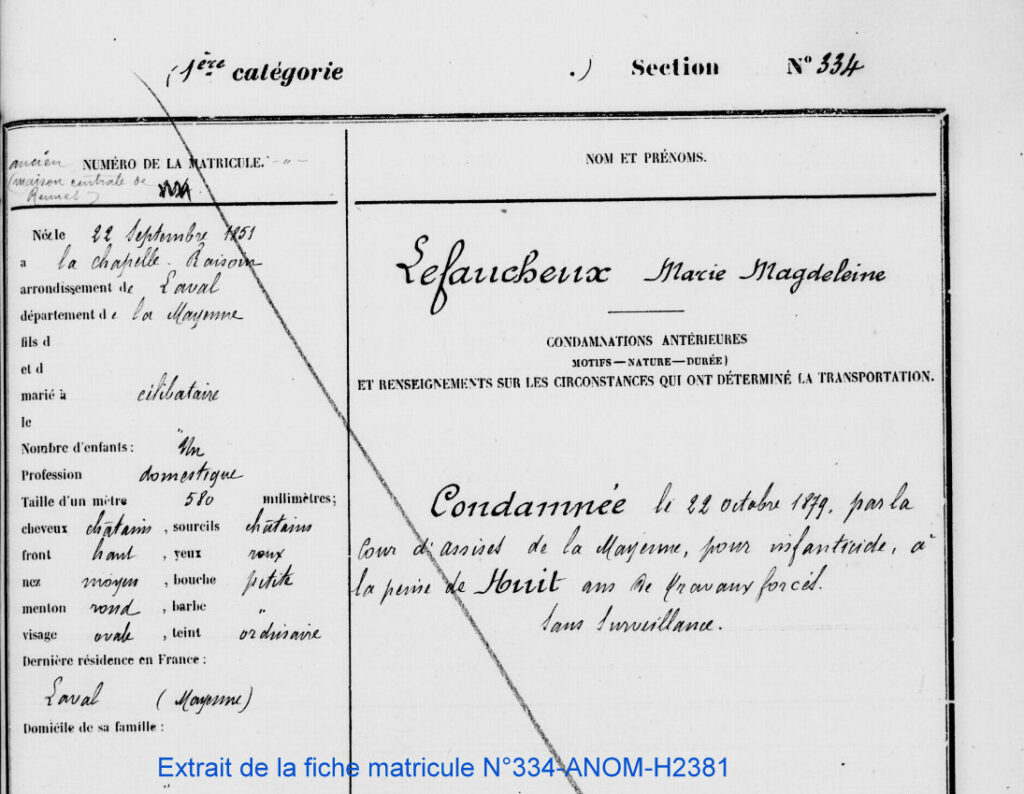 (1ère catégorie .) Section N° 334
ancien NUMÉRO DE LA MATRICULE. -"-
(maison centrale de
Rennes)
NOM ET PRÉNOMS.
Né e le 22 Septembre 1851
a la chapelle-Raisouin
arrondissement de Laval
département de la Mayenne
fils d
et d
marié à célibataire
le "
Nombre d'enfants : Un
Profession domestique
Taille d'un mètre 580 millimètres;
cheveux châtains , sourcils châtains
front haut , yeux roux
nez moyen , bouche petite
menton rond , barbe "
visage ovale , teint ordinaire
Dernière résidence en France :
Laval (Mayenne)
Domicile de sa famille :
Lefaucheux Marie Magdeleine
CONDAMNATIONS ANTÉRIEURES
MOTIFS — NATURE — DURÉE)
ET RENSEIGNEMENTS SUR LES CIRCONSTANCES QUI ONT DÉTERMINÉ LA TRANSPORTATION.
Condamnée le 22 octobre 1879, par la
Cour d'assises de la Mayenne, pour infanticide, à
la peine de Huit ans de travaux forcés.
Sans Surveillance.
Extrait de la fiche matricule N°334-ANOM-H2381